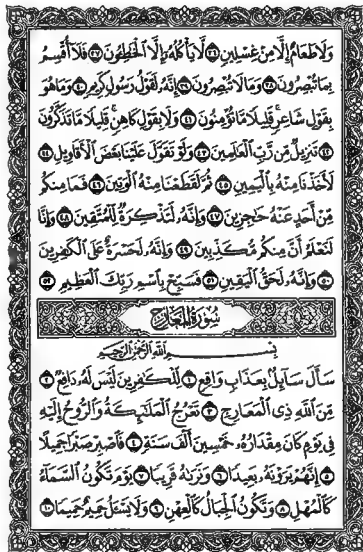 وَلَا طَعَامٌ إِلَّا مِنْ غِسْلِينٍ ٣٦ لَّا يَأْكُلُهُ إِلَّا الْخَاطِئُونَ ٣٧ فَلَا أُقْسِمُ
بِمَا تُبْصِرُونَ ٣٨ وَمَا لَا تُبْصِرُونَ ٣٩ إِنَّهُ لَقَوْلُ رَسُولٍ كَرِيمٍ ٤٠ وَمَا هُوَ
بِقَوْلِ شَاعِرٍ قَلِيلًا مَّا تُؤْمِنُونَ ٤١ وَلَا بِقَوْلِ كَاهِنٍ قَلِيلًا مَّا تَذَكَّرُونَ
٤٢ تَنزِيلٌ مِّن رَّبِّ الْعَالَمِينَ ٤٣ وَلَوْ تَقَوَّلَ عَلَيْنَا بَعْضَ الْأَقَاوِيلِ ٤٤
لَأَخَذْنَا مِنْهُ بِالْيَمِينِ ٤٥ ثُمَّ لَقَطَعْنَا مِنْهُ الْوَتِينَ ٤٦ فَمَا مِنكُم
مِّنْ أَحَدٍ عَنْهُ حَاجِزِينَ ٤٧ وَإِنَّهُ لَتَذْكِرَةٌ لِّلْمُتَّقِينَ ٤٨ وَإِنَّا
لَنَعْلَمُ أَنَّ مِنكُم مُّكَذِّبِينَ ٤٩ وَإِنَّهُ لَحَسْرَةٌ عَلَى الْكَافِرِينَ
٥٠ وَإِنَّهُ لَحَقُّ الْيَقِينِ ٥١ فَسَبِّحْ بِاسْمِ رَبِّكَ الْعَظِيمِ ٥٢
سُورَةُ الْمَعَارِجِ
بِسْمِ اللَّهِ الرَّحْمَٰنِ الرَّحِيمِ
سَأَلَ سَائِلٌ بِعَذَابٍ وَاقِعٍ ١ لِّلْكَافِرِينَ لَيْسَ لَهُ دَافِعٌ ٢
مِّنَ اللَّهِ ذِي الْمَعَارِجِ ٣ تَعْرُجُ الْمَلَائِكَةُ وَالرُّوحُ إِلَيْهِ
فِي يَوْمٍ كَانَ مِقْدَارُهُ خَمْسِينَ أَلْفَ سَنَةٍ ٤ فَاصْبِرْ صَبْرًا جَمِيلًا
٥ إِنَّهُمْ يَرَوْنَهُ بَعِيدًا ٦ وَنَرَاهُ قَرِيبًا ٧ يَوْمَ تَكُونُ السَّمَاءُ
كَالْمُهْلِ ٨ وَتَكُونُ الْجِبَالُ كَالْعِهْنِ ٩ وَلَا يَسْأَلُ حَمِيمٌ حَمِيمًا ١٠